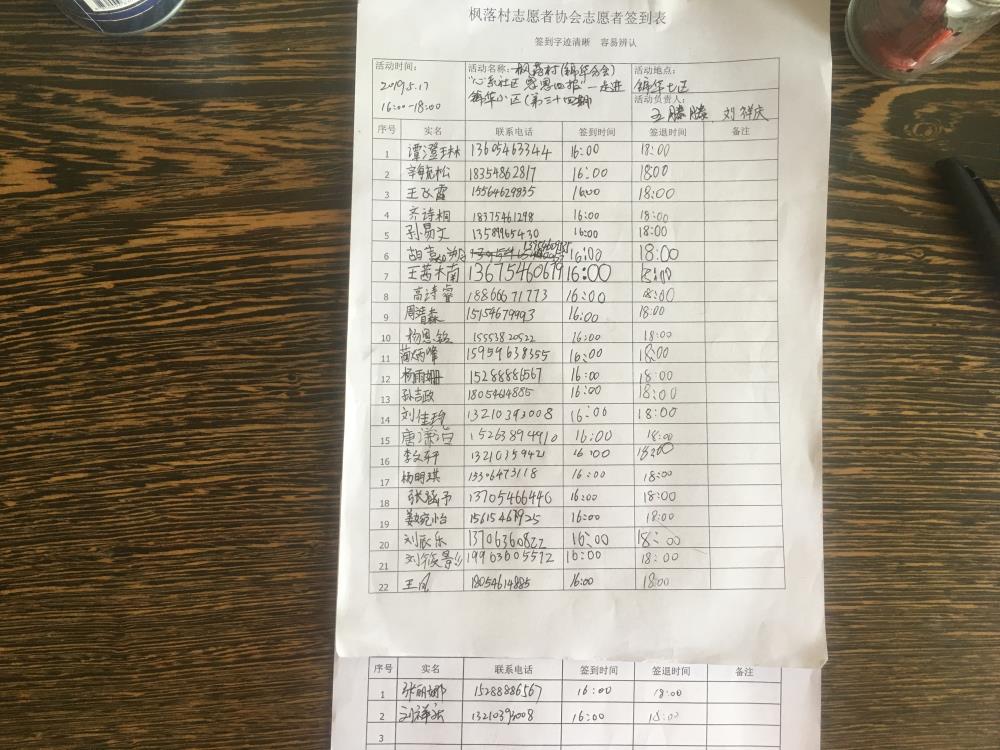 枫落村志愿者协会志愿者签到表
签到字迹清晰 容易辨认
活动时间:
2019.5.17
16:00-18:00
活动名称: 枫落村(锦华分会)
"心系社区 感恩回报"—走进
锦华小区(第三十四期)
活动地点:
锦华七区
活动负责人:
王腾腾、刘祥庆
序号 实名 联系电话 签到时间 签退时间 备注
1 谭澄琳 13605463344 16:00 18:00
2 辛毓松 18354862817 16:00 18:00
3 王飞霞 15564629835 16:00 18:00
4 齐诗桐 18375461298 16:00 18:00
5 孙易文 13589965430 16:00 18:00
6 16:00 18:00
7 王茜楠 13675460679 16:00 18:00
8 高诗睿 18866671773 16:00 18:00
9 周清森 15154679993 16:00 18:00
10 杨恩铭 15553820522 16:00 18:00
11 15959638355 16:00 18:00
12 杨雨姗 15288886567 16:00 18:00
13 孙吉政 18054614885 16:00 18:00
14 刘佳玲 13210393008 16:00 18:00
15 唐潇白 15263894910 16:00 18:00
16 李文轩 13210359421 16:00 18:00
17 杨明琪 13306473118 16:00 18:00
18 张涵予 13705466446 16:00 18:00
19 姜婉怡 15615467925 16:00 18:00
20 刘辰乐 13706360822 16:00 18:00
21 刘筱影 19963605572 16:00 18:00
22 王凤 18054614885 16:00 18:00
序号 实名 联系电话 签到时间 签退时间 备注
1 张丽娜 15288886567 16:00 18:00
2 刘祥庆 13210393008 16:00 18:00
3